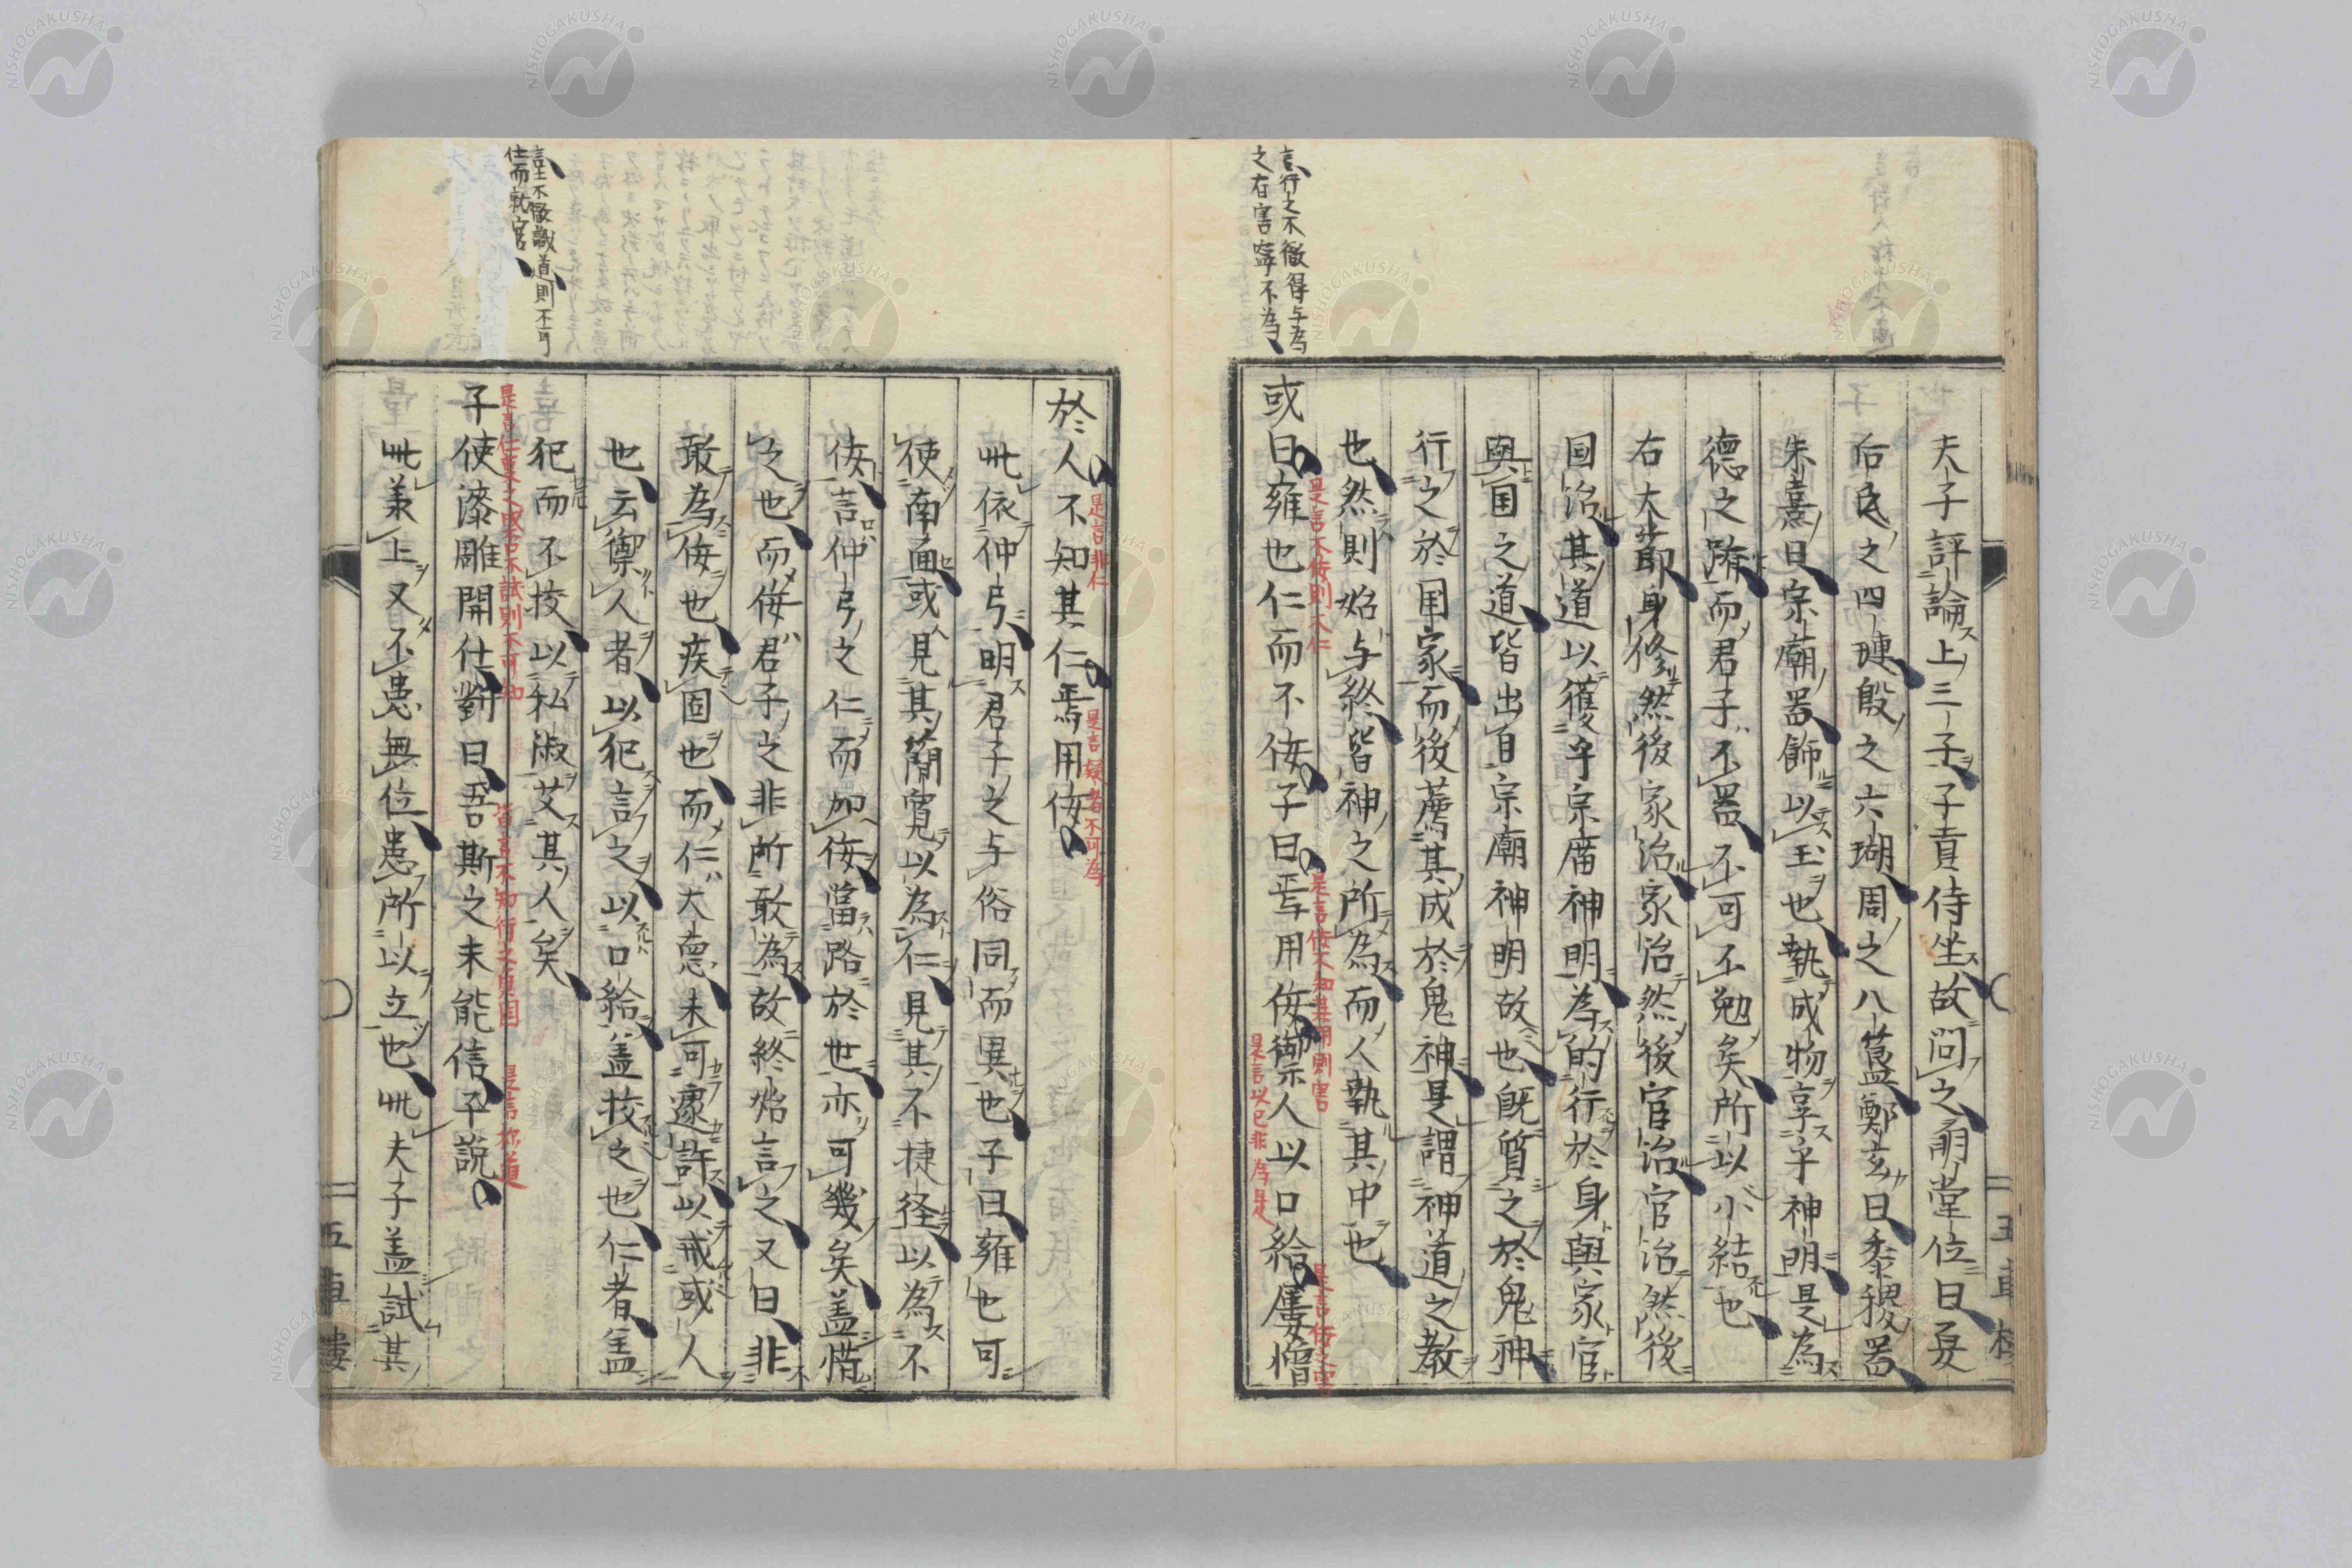 夫子評論上三子子貢侍坐故問之朙堂位曰夏
后氏之四璉殷之六瑚周之八簋鄭玄曰黍稷器
朱熹曰宗廟器飾以玉也執成物享乎神明是為
德之隮而君子不器不可不勉矣所以小結也
右大節身修然後家治家治然後官治官治然後
国治其道以獲乎宗庿神明為的行於身與家官
與国之道皆出自宗廟神明故也既質之於鬼神
行之於国家而後薦其成於鬼神是謂神道之教
也然則始与終皆神之所為而人執其中也
言行之不徴得与為
之右害寧不為
或曰雍也仁而不侫子曰焉用侫禦人以口給屢憎
是言不侫則不仁
是言侫不知其用則害
是言侫之害
是言以己非為是
於人不知其仁焉用侫
是言非仁
是言疑者不可為
此依仲弓明君子之与俗同而異也子曰雍也可
使南面或見其簡寛以為仁見其不捷径以為不
侫言仲弓之仁而加侫當路於世亦可幾矣盖惜
之也而侫君子之非所敢為故終始言之又曰非
敢為侫也疾固也而仁大德未可遽許以戒或人
也云禦人者以犯言之以口給盖技之也仁者盖
犯而不技以私淑艾其人矣
言不徴識道則不可
仕而就官
子使漆雕開仕對曰吾斯之未能信子說
是言仕要之以己不試則不可知
皆言不知行之自固
是言你道
此兼上又不患無位患所以立也此夫子盖試其
五車樓